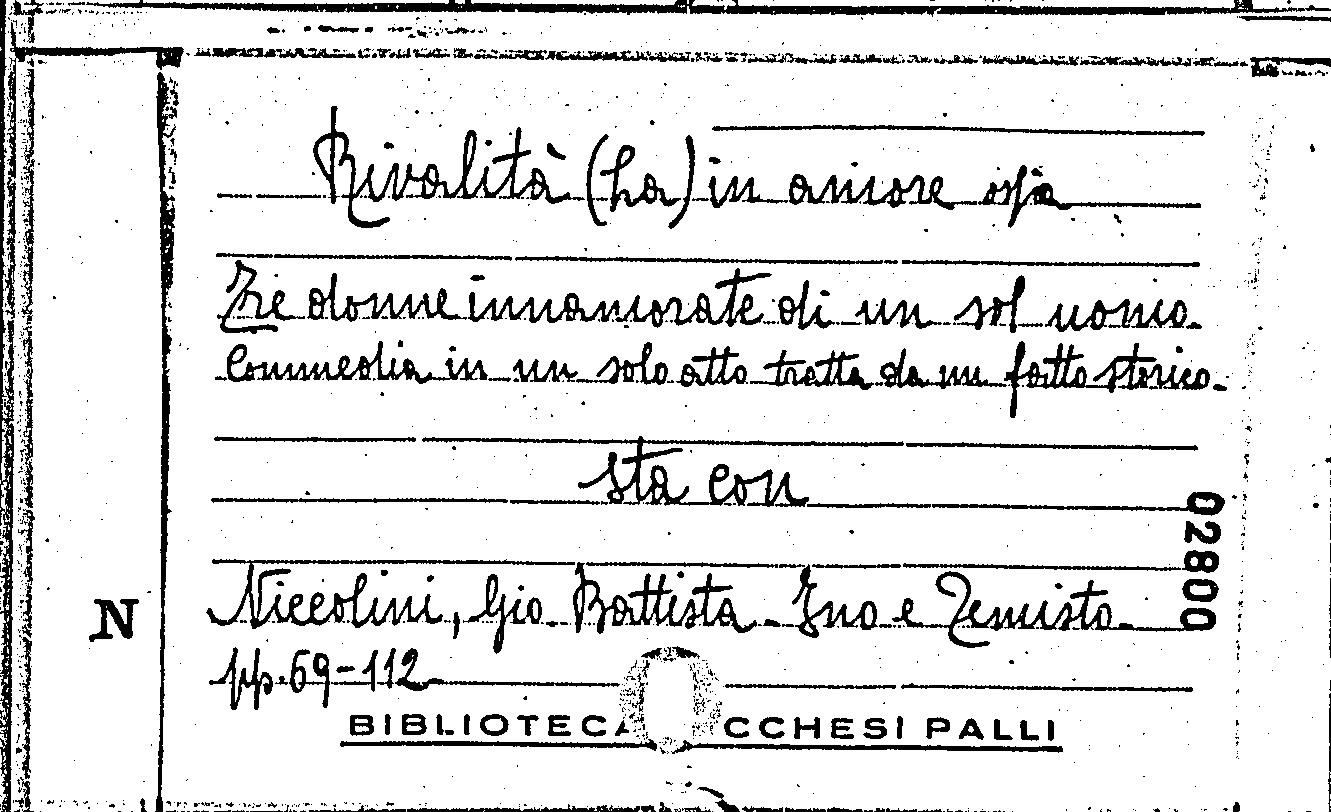 Rivalità (La) in amore ossia
Tre donne innamorate di un sol uomo.
Commedia in un solo atto tratta da un fatto storico.
sta con
02800
N
Niccolini, Gio. Battista. Ino e Temisto.
pp. 69-112
BIBLIOTECA CCHESI PALLI